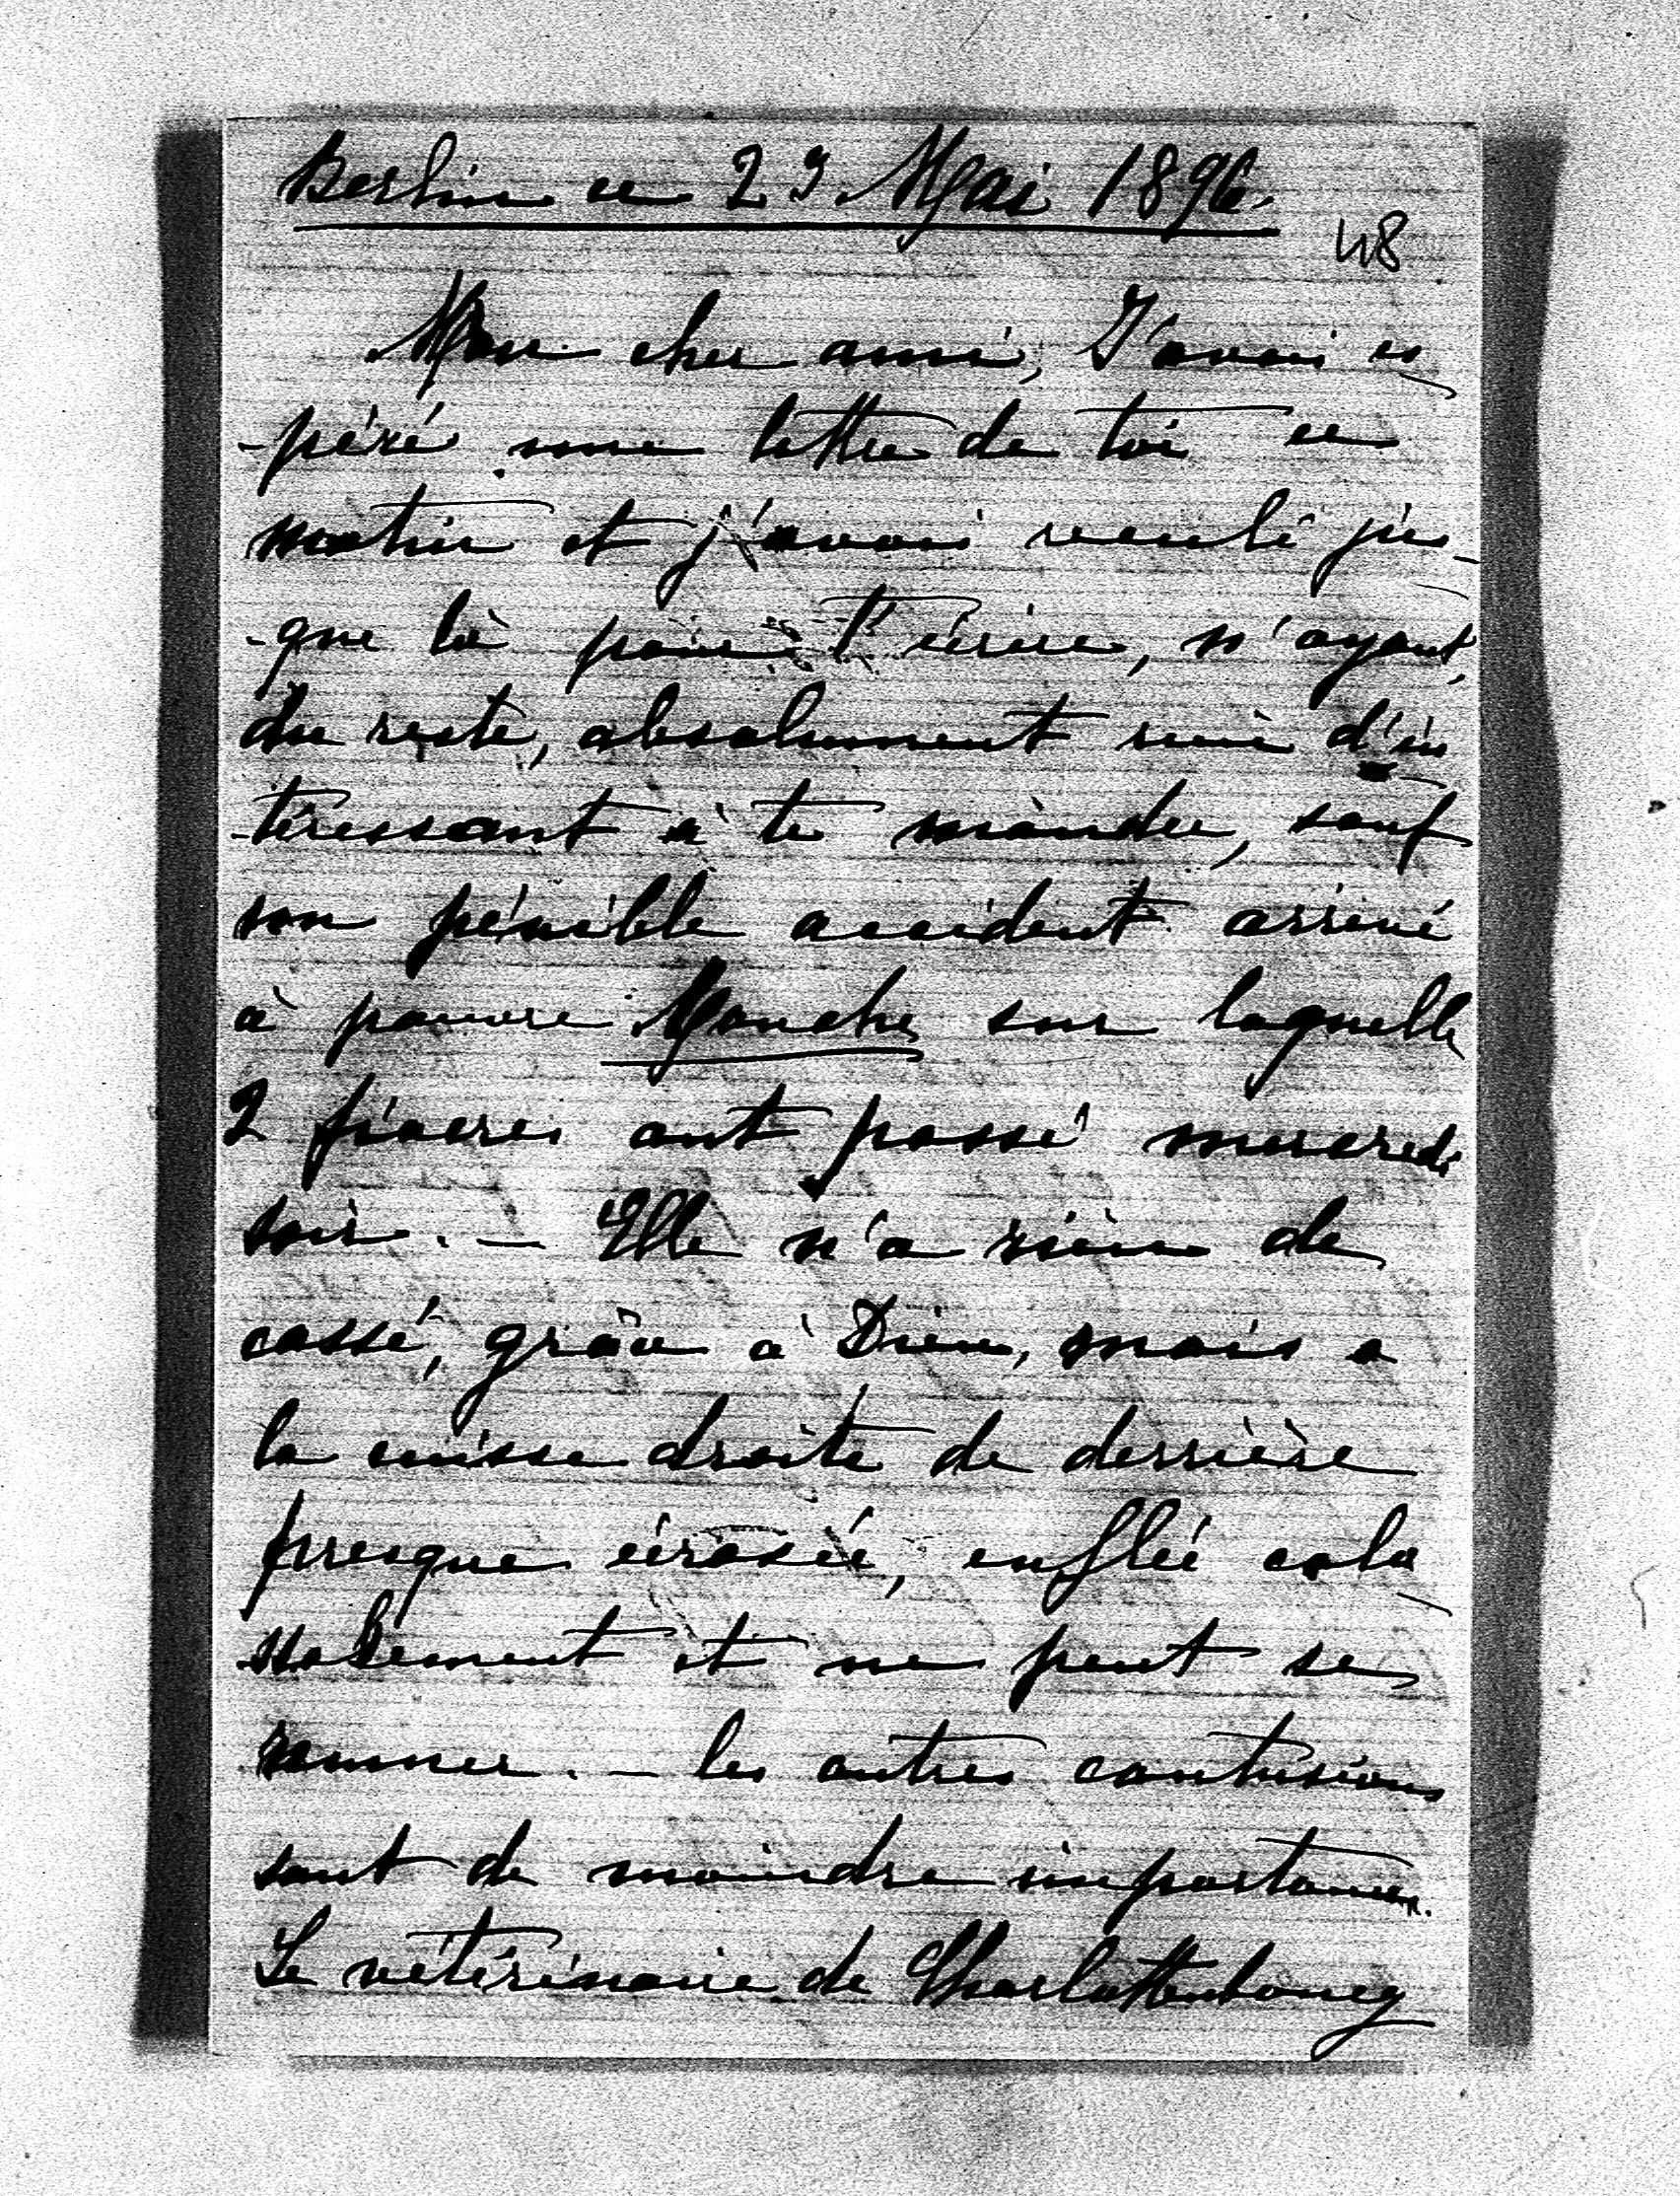 Berlin ce 23 Mai 1896.
48
Mon cher ami, J'avais es
-péré une lettre de toi ce
matin et j'avais reculé jus-
-que là pour t'écrire, n'ayant,
du reste, absolument rien d'in
-téressant à te mander, sauf
son pénible accident arrivé
à pauvre Mouche sur laquelle
2 fiacres ont passé mercredi
soir. — Elle n'a rien de
cassé, grâce à Dieu, mais a
la cuisse droite de derrière
presque écrasée, enflée colo
-ssalement et ne peut se
remuer. — les autres contusions
sont de moindre importance.
Le vétérinaire de Charlottenbourg